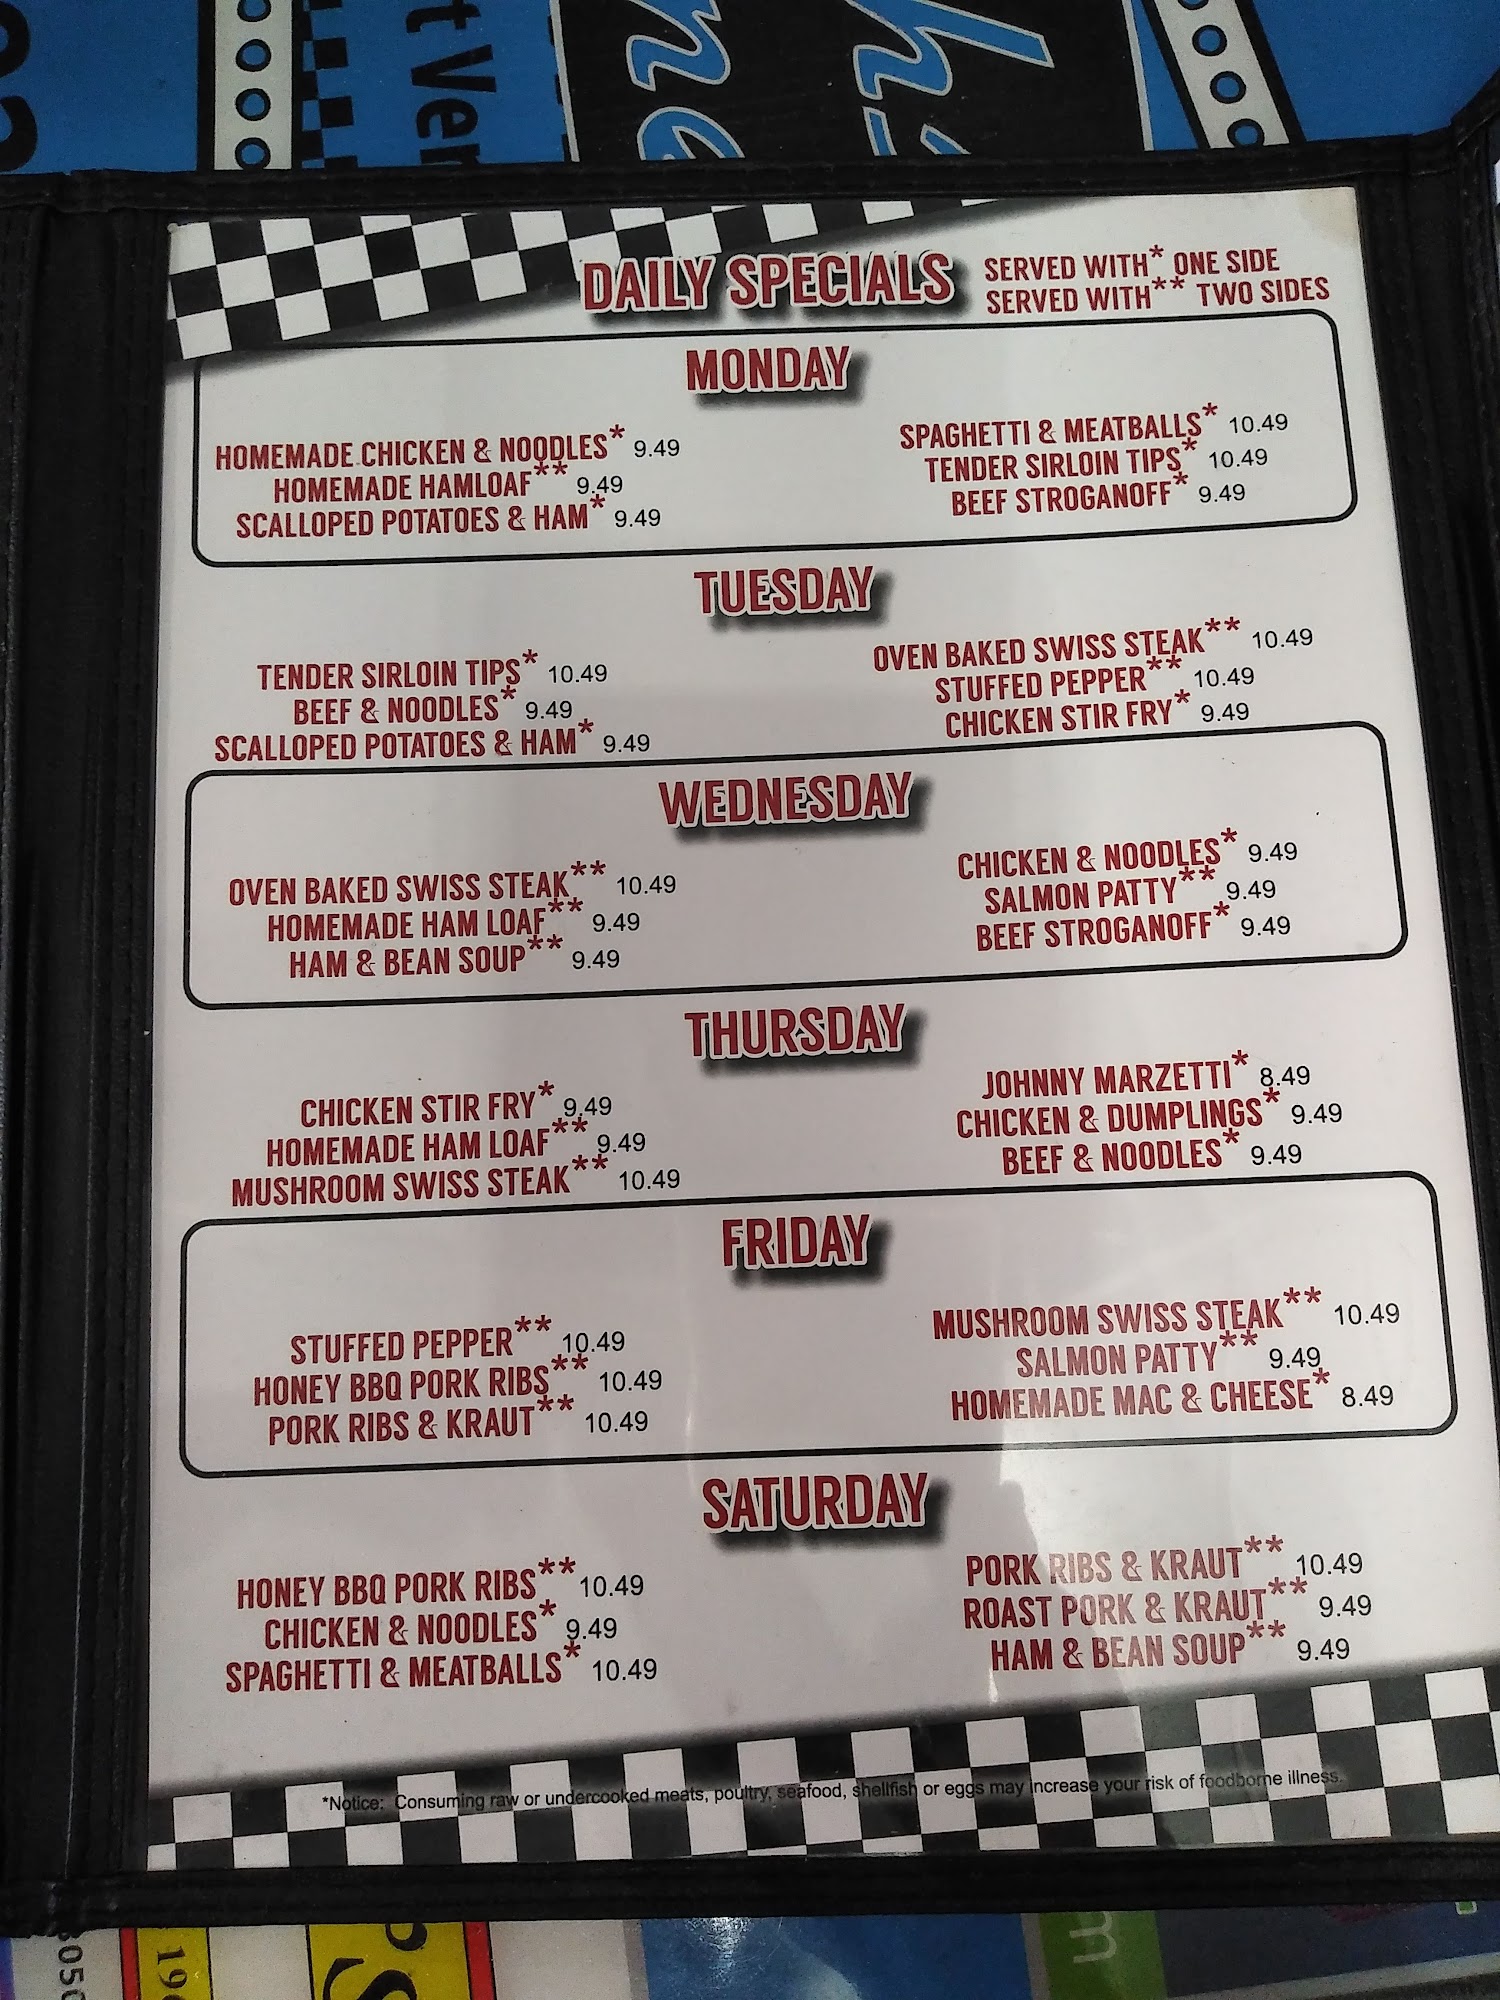 DAILY SPECIALS
SERVED WITH* ONE SIDE
SERVED WITH** TWO SIDES
MONDAY
HOMEMADE CHICKEN & NOODLES* 9.49
HOMEMADE HAMLOAF** 9.49
SCALLOPED POTATOES & HAM* 9.49
SPAGHETTI & MEATBALLS* 10.49
TENDER SIRLOIN TIPS* 10.49
BEEF STROGANOFF* 9.49
TUESDAY
TENDER SIRLOIN TIPS* 10.49
BEEF & NOODLES* 9.49
SCALLOPED POTATOES & HAM* 9.49
OVEN BAKED SWISS STEAK** 10.49
STUFFED PEPPER** 10.49
CHICKEN STIR FRY* 9.49
WEDNESDAY
OVEN BAKED SWISS STEAK** 10.49
HOMEMADE HAM LOAF** 9.49
HAM & BEAN SOUP** 9.49
CHICKEN & NOODLES* 9.49
SALMON PATTY** 9.49
BEEF STROGANOFF* 9.49
THURSDAY
CHICKEN STIR FRY* 9.49
HOMEMADE HAM LOAF** 9.49
MUSHROOM SWISS STEAK** 10.49
JOHNNY MARZETTI* 8.49
CHICKEN & DUMPLINGS* 9.49
BEEF & NOODLES* 9.49
FRIDAY
STUFFED PEPPER** 10.49
HONEY BBQ PORK RIBS** 10.49
PORK RIBS & KRAUT** 10.49
MUSHROOM SWISS STEAK** 10.49
SALMON PATTY** 9.49
HOMEMADE MAC & CHEESE* 8.49
SATURDAY
HONEY BBQ PORK RIBS** 10.49
CHICKEN & NOODLES* 9.49
SPAGHETTI & MEATBALLS* 10.49
PORK RIBS & KRAUT** 10.49
ROAST PORK & KRAUT** 9.49
HAM & BEAN SOUP** 9.49
*Notice: Consuming raw or undercooked meats, poultry, seafood, shellfish or eggs may increase your risk of foodborne illness.